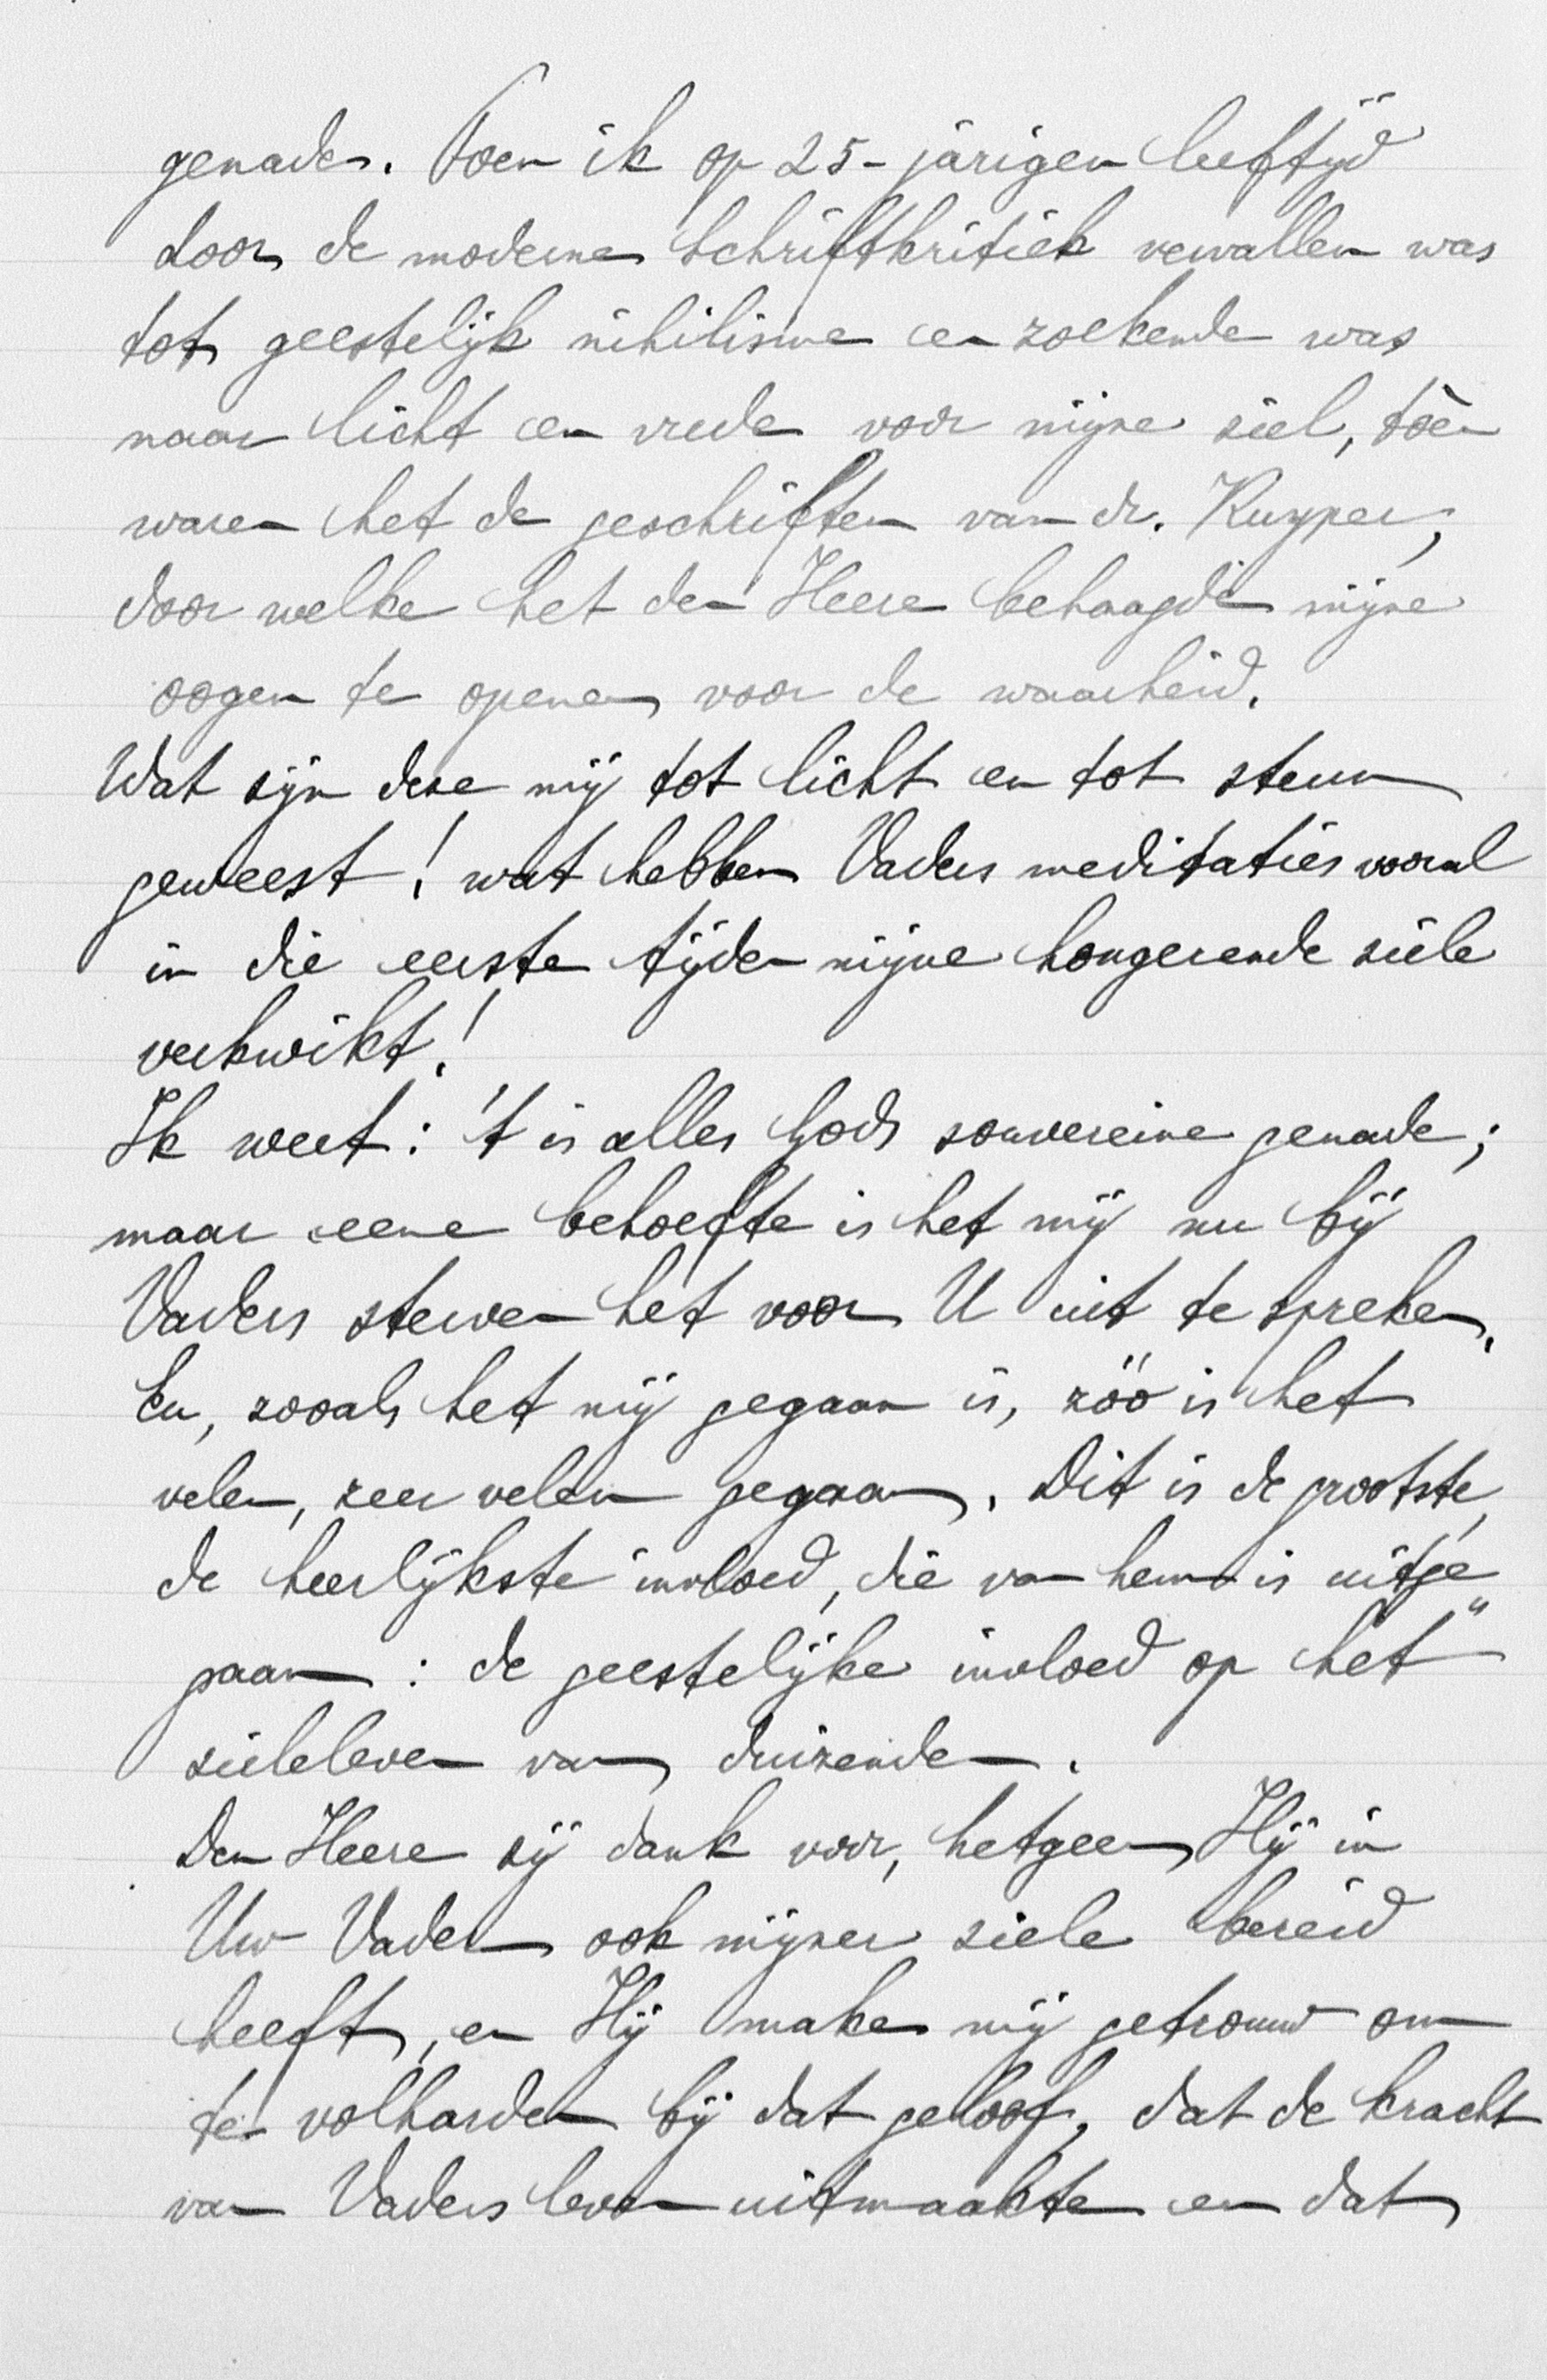 genade. Toen ik op 25-jarigen leeftijd
door de moderne Schriftkritiek vervallen was
tot geestelijk nihilisme en zoekende was
naar licht en vrede voor mijne ziel, tòèn
waren het de geschriften van dr. Kuyper,
door welke het den Heere behaagde mijne
oogen te openen voor de waarheid.
Wat zijn deze mij tot licht en tot steun
geweest! wat hebben Vaders meditaties vooral
in die eerste tijden mijne hongerende ziele
verkwikt!
Ik weet: 't is alles Gods souvereine genade;
maar eene behoefte is het mij nu bij
Vaders sterven het voor U uit te spreken.
En, zooals het mij gegaan is, zóó is het
velen, zeer velen gegaan. Dit is de grootste,
de heerlijkste invloed, die van hem is uitge„
gaan: de geestelijke invloed op het
zieleleven van duizenden.
Den Heere zij dank voor, hetgeen Hij in
Uw Vader ook mijner ziele bereid
heeft, en Hij make mij getrouw om
te volharden bij dat geloof, dat de kracht
van Vaders leven uitmaakte en dat